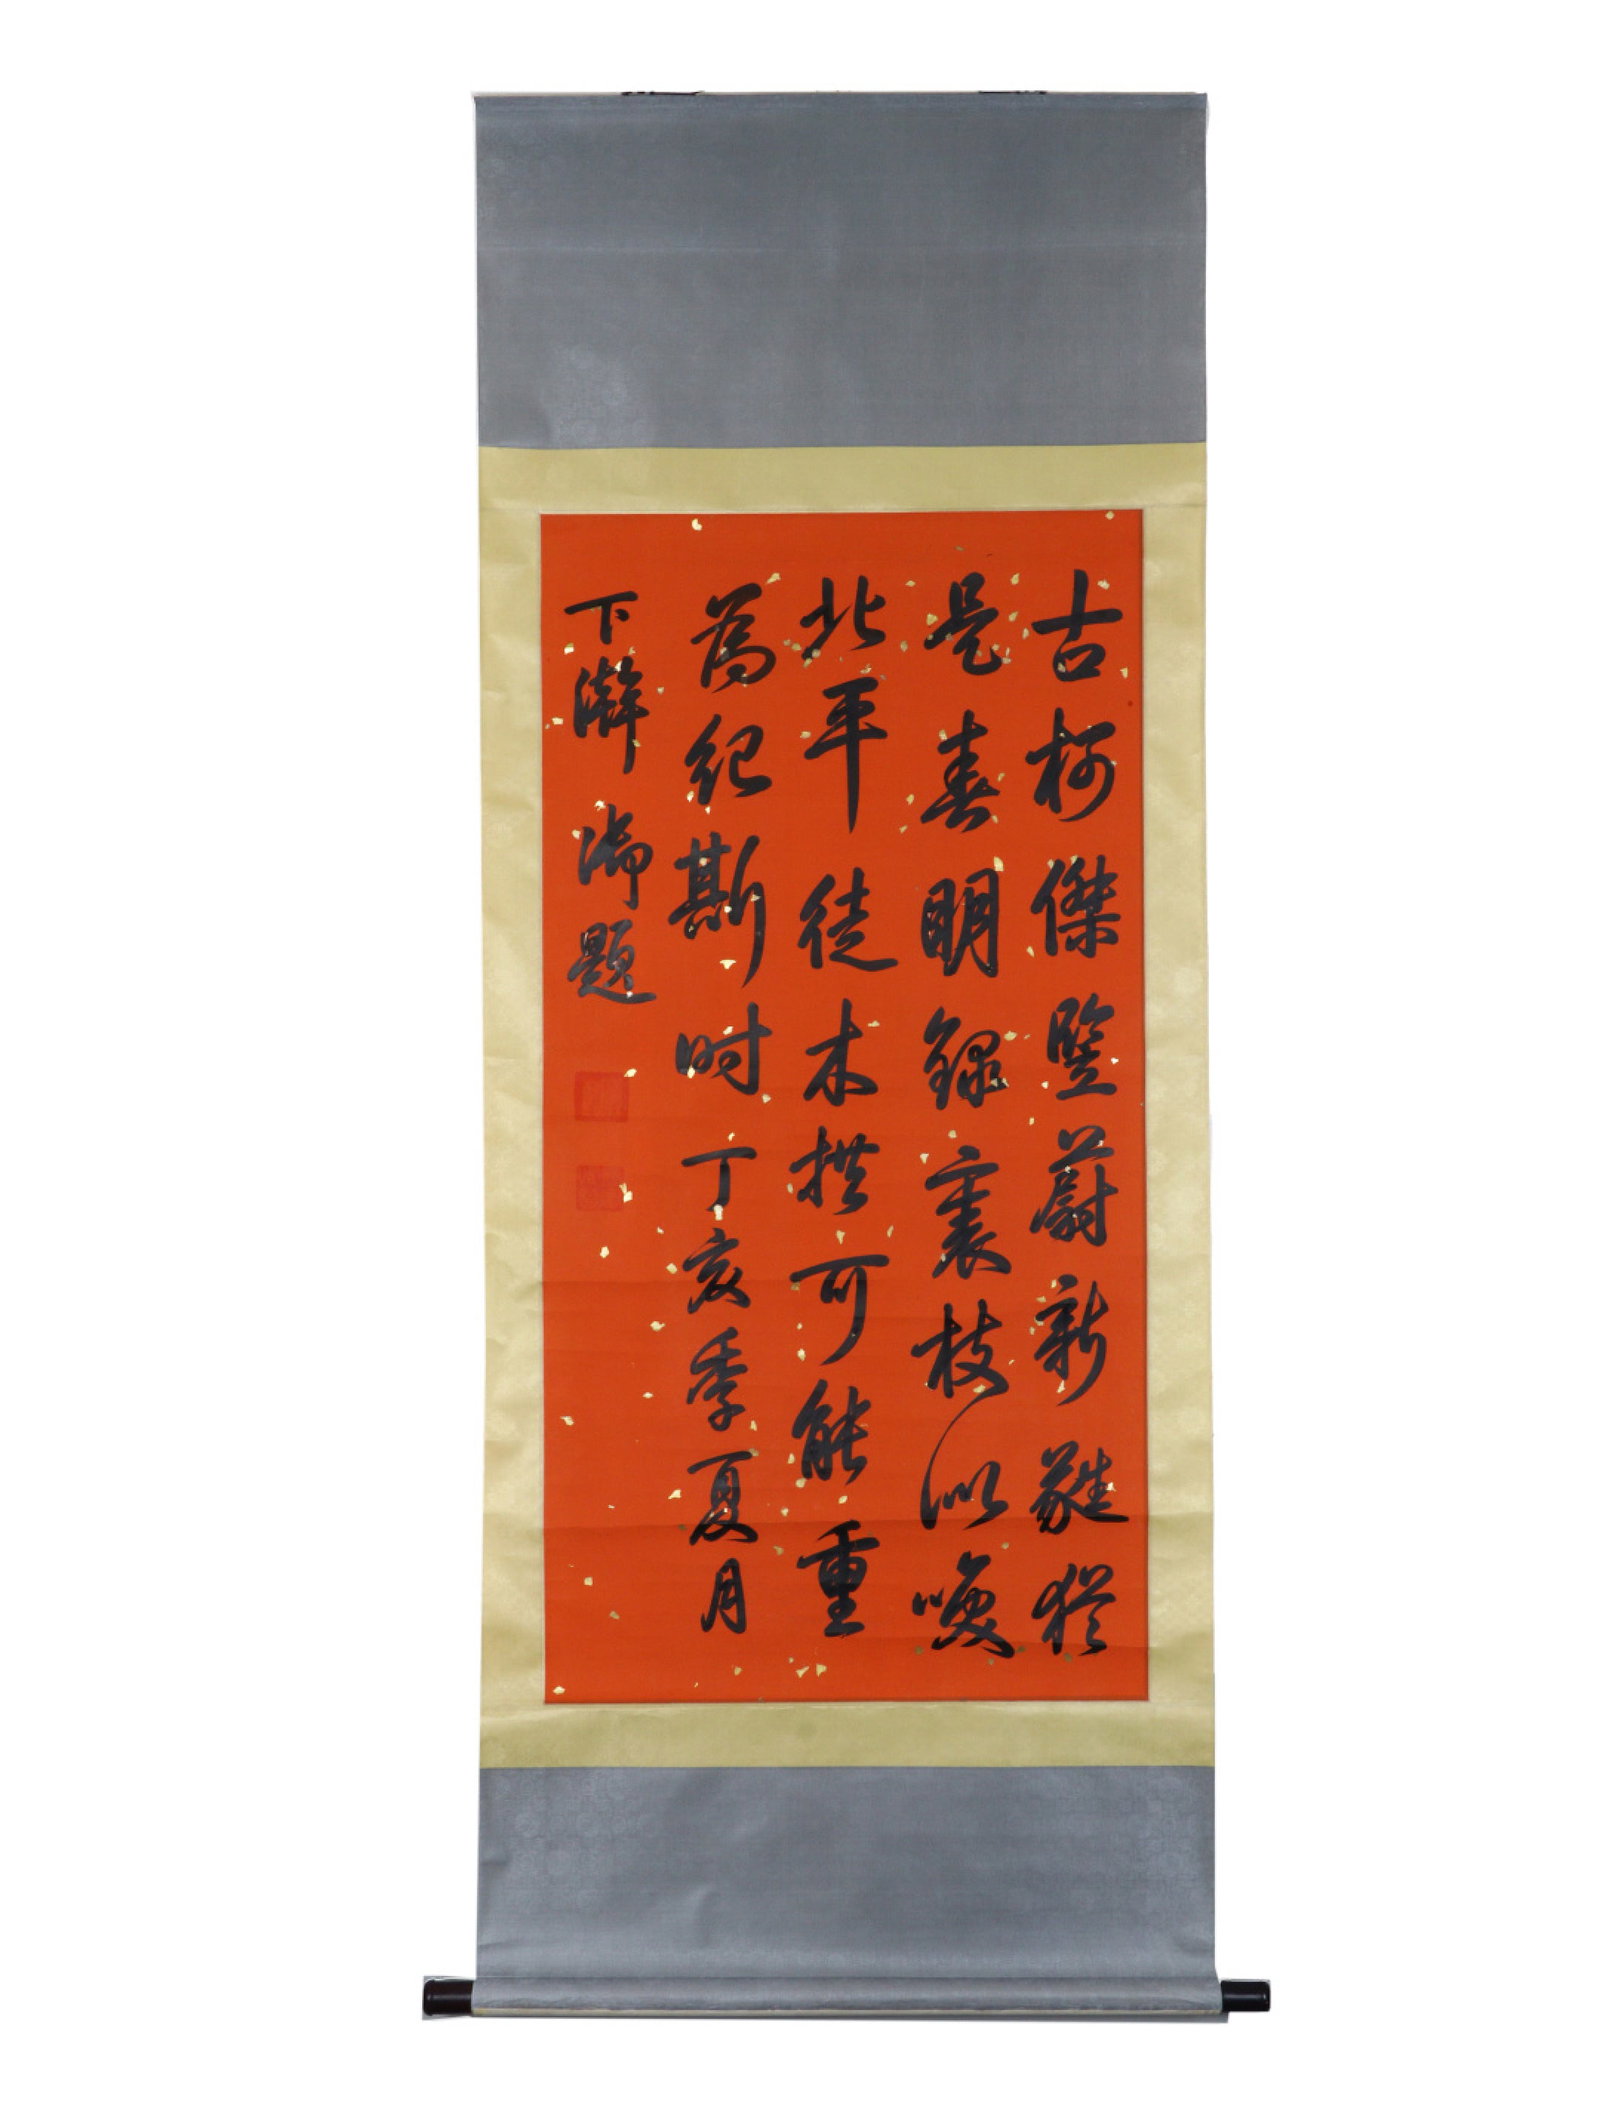 古柯傑竪蔚新蕤猶
是春明錄裏枝似喚
北平徒木拱可能重
為紀斯时丁亥季夏月
下澣御題